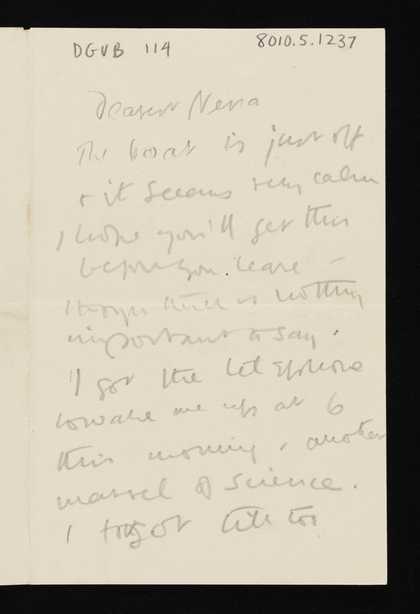 DGVB 114
8010.5.1237
Dearest Nessa
The boat is just off
& it seems very calm
I hope you'll get this
before you leave -
though there is nothing
important to say.
I got the telephone
to wake me up at 6
this morning, another
marvel of science.
I forgot